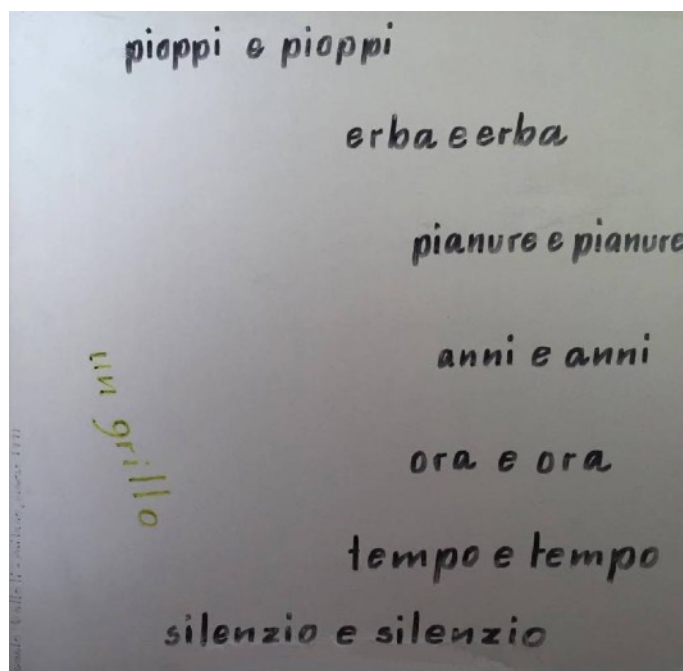 pioppi e pioppi
erba e erba
pianure e pianure
anni e anni
ora e ora
tempo e tempo
silenzio e silenzio
un grillo